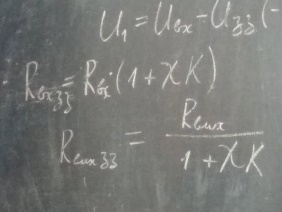 U₁ = Uвх - Uзз (-
Rвхзз = Rвх·(1 + χK)
Rвыхзз = Rвых / (1 + χK)